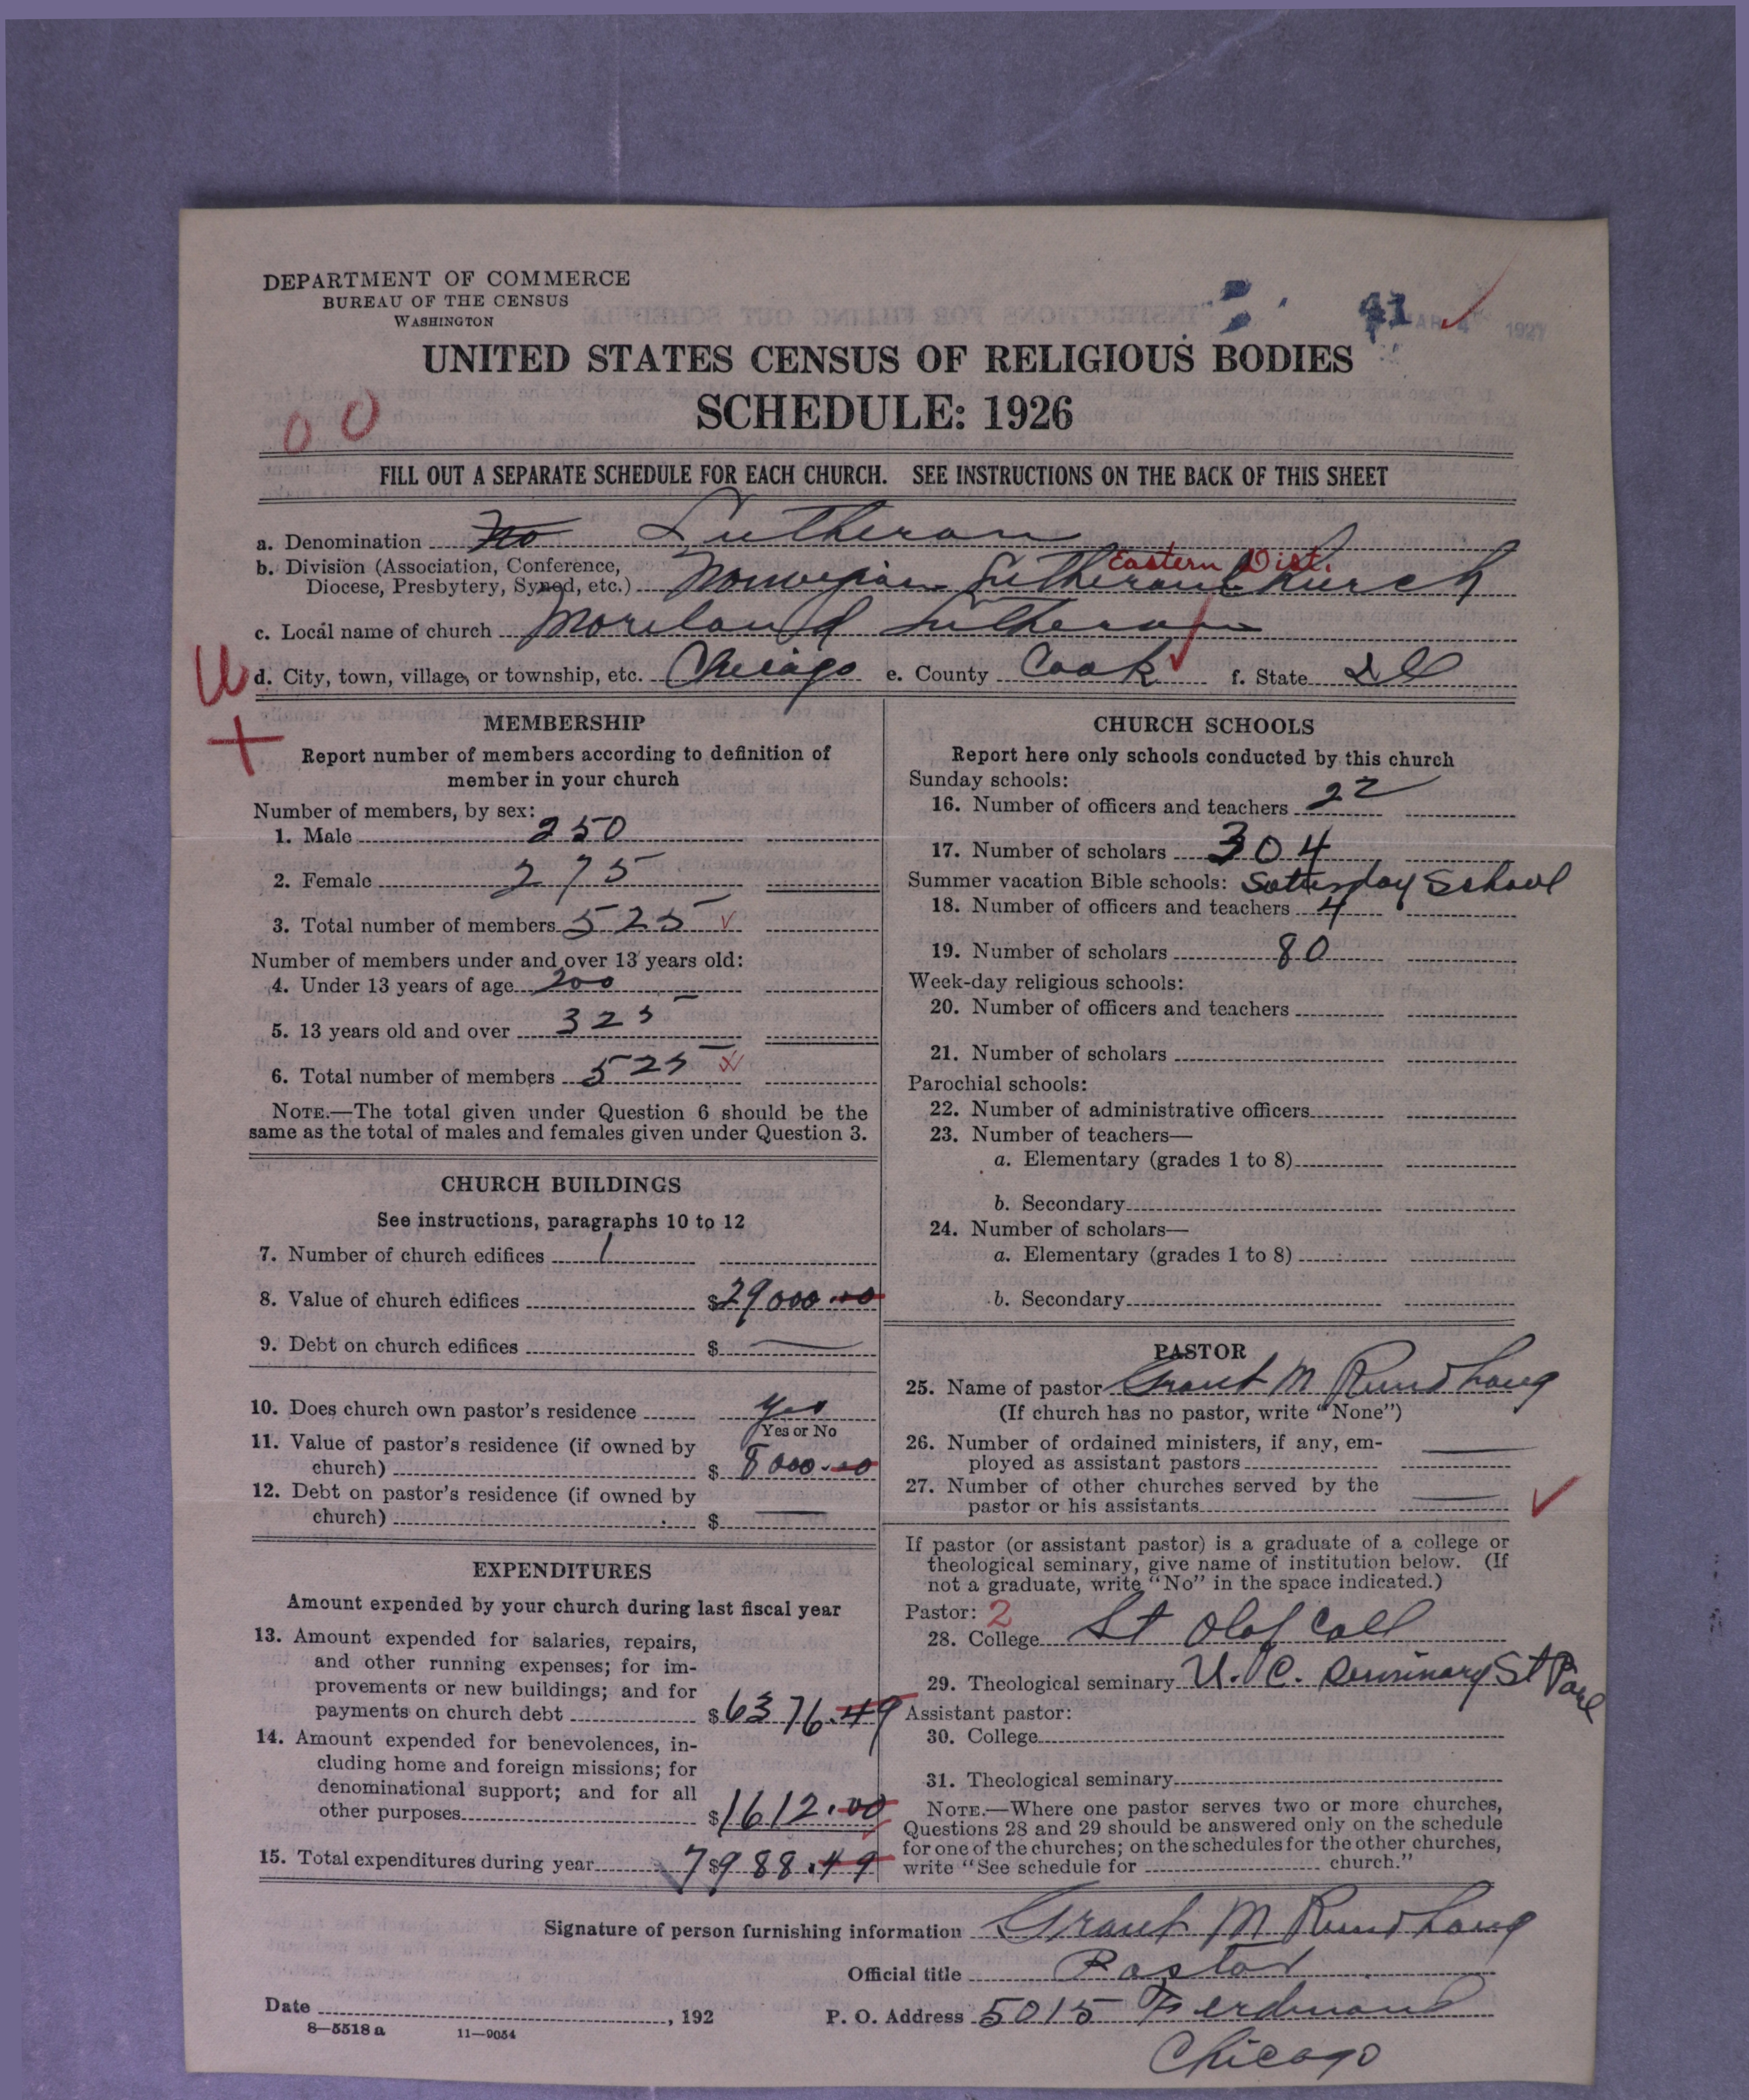 DEPARTMENT OF COMMERCE
BUREAU OF THE CENSUS
WASHINGTON
41
1927
UNITED STATES CENSUS OF RELIGIOUS BODIES
SCHEDULE: 1926
00
FILL OUT A SEPARATE SCHEDULE FOR EACH CHURCH. SEE INSTRUCTIONS ON THE BACK OF THIS SHEET
a. Denomination Lutheran
Eastern Dist.
b. Division (Association, Conference,
Diocese, Presbytery, Synod, etc.) Norwegian Lutheran Church
c. Local name of church Moreland Lutheran
d. City, town, village, or township, etc. Chicago e. County Cook f. State Ill
MEMBERSHIP
Report number of members according to definition of
member in your church
Number of members, by sex:
1. Male 250
2. Female 275
3. Total number of members 525
Number of members under and over 13 years old:
4. Under 13 years of age 200
5. 13 years old and over 325
6. Total number of members 525
NOTE.—The total given under Question 6 should be the
same as the total of males and females given under Question 3.
CHURCH BUILDINGS
See instructions, paragraphs 10 to 12
7. Number of church edifices 1
8. Value of church edifices $29000.00
9. Debt on church edifices $
10. Does church own pastor's residence Yes
Yes or No
11. Value of pastor's residence (if owned by
church) $ 8000.00
12. Debt on pastor's residence (if owned by
church) $
EXPENDITURES
Amount expended by your church during last fiscal year
13. Amount expended for salaries, repairs,
and other running expenses; for im-
provements or new buildings; and for
payments on church debt $6376.49
14. Amount expended for benevolences, in-
cluding home and foreign missions; for
denominational support; and for all
other purposes $1612.00
15. Total expenditures during year $7988.49
CHURCH SCHOOLS
Report here only schools conducted by this church
Sunday schools:
16. Number of officers and teachers 22
17. Number of scholars 304
Summer vacation Bible schools: Saturday School
18. Number of officers and teachers 4
19. Number of scholars 80
Week-day religious schools:
20. Number of officers and teachers
21. Number of scholars
Parochial schools:
22. Number of administrative officers
23. Number of teachers—
a. Elementary (grades 1 to 8)
b. Secondary
24. Number of scholars—
a. Elementary (grades 1 to 8)
b. Secondary
PASTOR
25. Name of pastor Grant M Rundhaug
(If church has no pastor, write "None")
26. Number of ordained ministers, if any, em-
ployed as assistant pastors
27. Number of other churches served by the
pastor or his assistants
If pastor (or assistant pastor) is a graduate of a college or
theological seminary, give name of institution below. (If
not a graduate, write "No" in the space indicated.)
Pastor: 2
28. College St Olaf Coll
29. Theological seminary U. C. Seminary St Paul
Assistant pastor:
30. College
31. Theological seminary
NOTE.—Where one pastor serves two or more churches,
Questions 28 and 29 should be answered only on the schedule
for one of the churches; on the schedules for the other churches,
write "See schedule for church."
Signature of person furnishing information Grant M Rundhaug
Official title Pastor
Date , 192 P. O. Address 5015 Ferdinand
8—5518 a 11—9054
Chicago